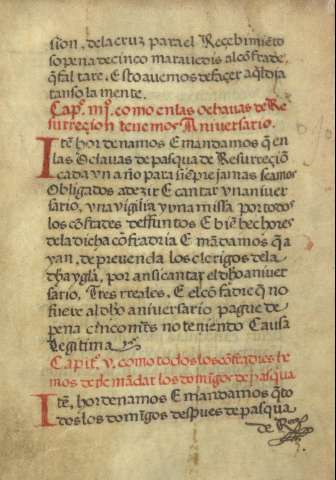 sion, dela cruz para el Reçebimiẽto
so pena de cinco maravedis al cõfrade,
q̃ fal tare. Esto avemos de façer aq̃l dia
tanso la mente.
Cap.º iiij.º como en las ochavas de Re
surreçion tenemos Aniversario.
Itẽ hordenamos E mandamos q̃ en
las Octavas de pasqua de Resurreciõ
cada vn año para siẽpre jamas seamos
Obligados a dezir E cantar vn aniver
sario, vna vigilia y vna missa por todos
los cõfrades deffuntos E biẽ hechores
dela dicha cõfradria E mãdamos q̃ a
yan, de prevenda los clerigos de la
dha ygla, por ansi cantar el dho aniver
sario, Tres rreales. E el cõfadre q̃ no
fuere al dho aniversario pague de
pena cinco mr̃s no teniendo Causa
Legitima
Capit.º v. como todos los cõfradres he
mos de mãdar los domĩgos de pasqua
Itẽ, hordenamos E mandamos q̃ to
dos los domĩgos despues de pasqua
de